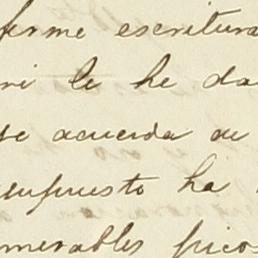 forme escritura
ni le he da
se acuerda de
supuesto ha
merables picos